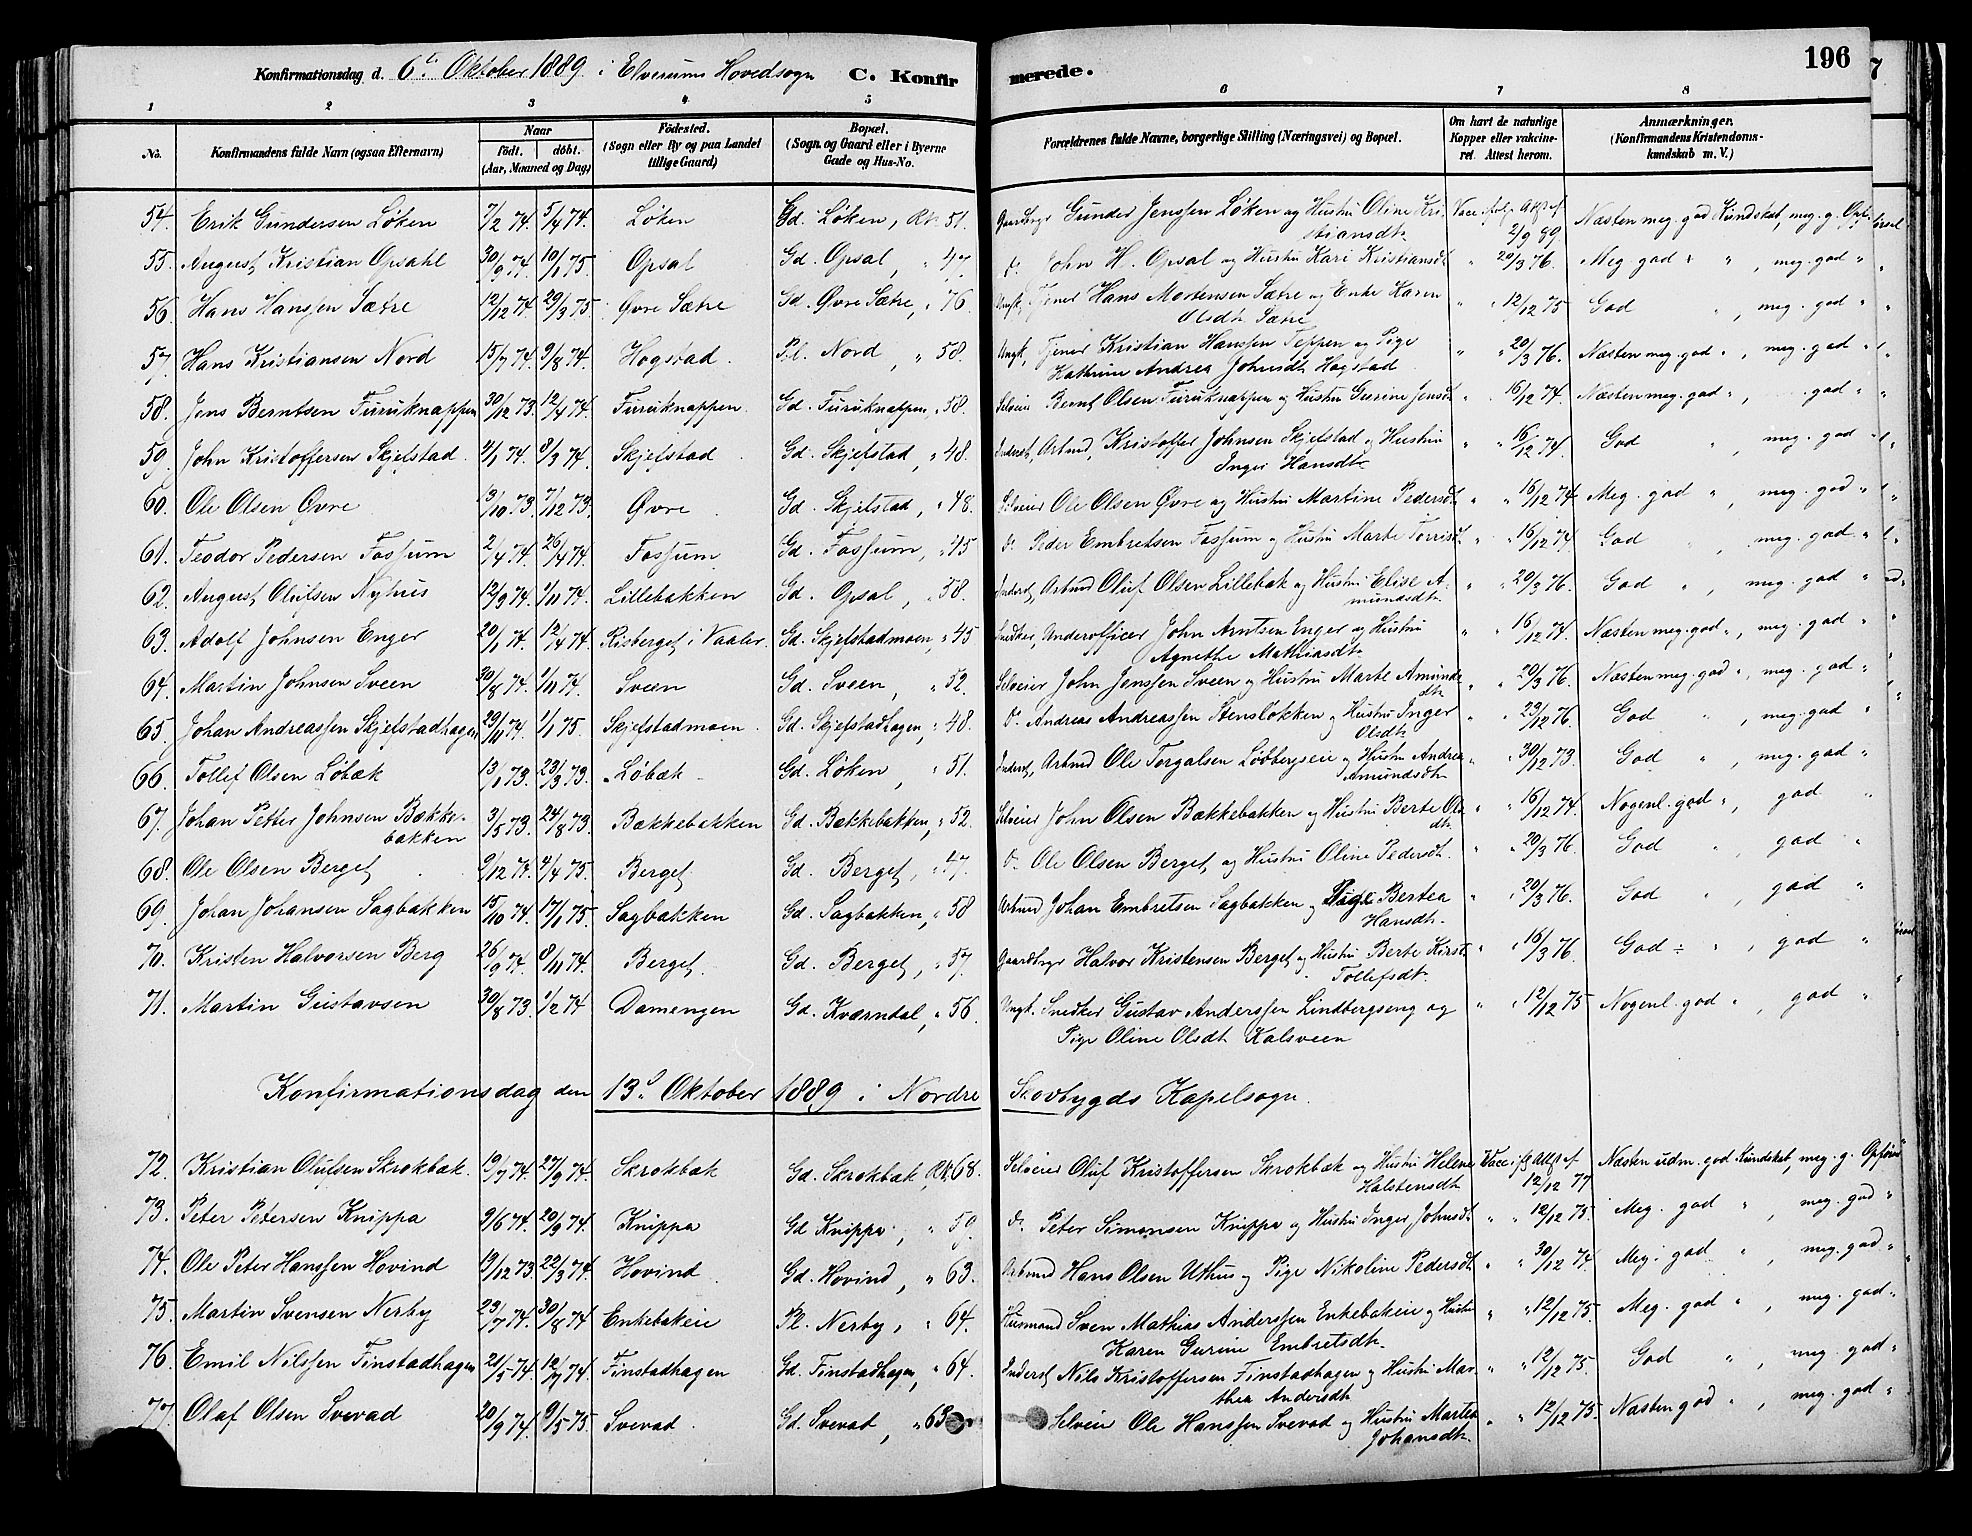 196
Konfirmationsdag d. 6te Oktober 1889 i Elverums Hovedsogn C. Konfirmerede.
1 2 3 4 5 6 7 8
No. Konfirmandens fulde Navn (ogsaa Efternavn) Naar født. døbt. (Aar, Maaned og Dag) Fødested. (Sogn eller By og paa Landet tillige Gaard) Bopæl. (Sogn og Gaard eller i Byerne Gade og Hus-No. Forældrenes fulde Navne, borgerlige Stilling (Næringsvei) og Bopæl. Om havt de naturlige Kopper eller vakcineret. Attest herom. Anmærkninger. (Konfirmandens Kristendomskundskab m. V.)
54. Erik Gundersen Løken 7/2 74. 5/4 74. Løken Gd. Løken, Rk. 51. Gaardbrgr Gunder Jenssen Løken og Hustru Oline Kri-
stiansdt. Vacc. ifølge Attst af 2/9 89 Næsten meg. god Kundskab, meg. g. Opførsel
55. August Kristian Opsahl 30/9 74. 10/1 75. Opsal Gd. Opsal, " 47. do John H. Opsal og Hustru Kari Kristiansdt " 20/3 76. Meg. god " ", meg. god "
56. Hans Hansen Sætre 12/12 74. 29/3 75. Øvre Sætre Gd. Øvre Sætre, " 76. Ungk, Tjener Hans Mortensen Sætre og Enke Karen
Olsdt. Sætre " " 12/12 75 God ", meg. god "
57. Hans Kristiansen Nord 15/7 74. 9/8 74. Hogstad. Pl. Nord, " 58. Ungk, Tjener Kristian Hanssen Teppen og Pige
Kathrine Andrea Johnsdt Hogstad " " 20/3 76. Næsten meg. god ", meg. god "
58. Jens Berntsen Furuknappen 30/12 73. 12/4 74. Furuknappen. Gd. Furuknappen, " 58. Selveier Bernt Olsen Furuknappen og Hustru Gurine Jensdt " " 16/12 74. Næsten meg. god ", god "
59. John Kristoffersen Skjefstad. 4/1 74. 8/3 74. Skjefstad Gd. Skjefstad, " 48. Inderst, Arbmd, Kristoffer Johnsen Skjefstad og Hustru
Inger Hansdt. " " 16/12 74. God ", meg. god "
60. Ole Olsen Øvre 13/10 73. 7/12 73. Øvre. Gd. Skjefstad, " 48. Selveier Ole Olsen Øvre og Hustru Martine Pedersdt. " " 16/12 74. Meg. god " meg. god "
61. Teodor Pedersen Fossum 2/4 74. 26/4 74. Fossum Gd. Fossum, " 45 do Peder Embretsen Fossum og Hustru Marte Torrisdt " " 16/12 74 God ", meg. god. "
62. August Olufsen Nyhus 12/9 74. 1/11 74. Lillebakken Gd. Opsal, " 58. Inderst, Arbmd Oluf Olsen Lillebak og Hustru Elise A-
mundsdt. " " 20/3 76. God ", meg. god "
63. Adolf Johnsen Enger 20/1 74. 12/4 74. Risberget i Vaaler. Gd. Skjefstadmoen, " 45 Snedker, Underofficer John Arntsen Enger og Hustru
Agnethe Mathiasdt. " " 16/12 74. Næsten meg. god ", meg. god "
64. Martin Johnsen Sveen 30/8 74. 1/11 74. Sveen Gd. Sveen, " 52. Selveier John Jenssen Sveen og Hustru Marte Amunds
dt. " " 20/3 76. Næsten meg. god ", meg. god "
65. Johan Andreassen Skjefstadhagen 29/11 74. 1/1 75. Skjefstadmoen. Gd. Skjefstadhagen, " 48. do Andreas Andreassen Stensløkken og Hustru Inger
Olsdt. " " 23/12 76. God ", meg. god "
66. Tollef Olsen Løbæk 13/1 73. 23/3 73. Løbæk Gd. Løken, " 51. Inderst, Arbmd Ole Torgalsen Løvbergseie og Hustru Andrea
Amundsdt. " " 30/12 73. God ", meg. god "
67. Johan Petter Johnsen Bække-
bakken 3/5 73. 24/8 73. Bækkebakken Gd. Bækkebakken, " 52. Selveier John Olsen Bækkebakken og Hustru Berte Ols
dt. " " 16/12 74. Nogenl. god ", god "
68. Ole Olsen Berget 9/12 74. 4/4 75. Berget Gd. Berget, " 47. do Ole Olsen Berget og Hustru Oline Pedersdt. " " 20/3 76. God ", god "
69. Johan Johansen Sagbakken 15/10 74. 17/1 75. Sagbakken Gd. Sagbakken, " 58 Arbmd Johan Embretsen Sagbakken og Pige Bertea
Hansdt. " " 20/3 76. God ", god "
70. Kristen Halvorsen Berg 26/9 74. 8/11 74. Berget. Gd. Berget, " 57. Gaardbrgr Halvor Kristensen Berget og Hustru Berte Kirst.
Tollefsdt. " " 16/3 76. God ÷ ", god "
71. Martin Gustavsen 30/8 73. 1/2 74 Damengen Gd. Kværndal, " 56. Ungk. Snedker Gustav Anderssen Lindbergseng og
Pige Oline Olsdt. Kalsveen " " 12/12 75 Nogenl. god ", god "
Konfirmationsdag den 13de Oktober 1889 i Nordre Skovbygds Kapelsogn.
72. Kristian Olufsen Skrokbæk. 19/7 74. 27/9 74. Skrokbæk Gd. Skrokbæk, Rk. 68. Selveier Oluf Kristoffersen Skrokbæk og Hustru Helene
Halstensdt. Vacc. ifg Attst af 12/12 77 Næsten udm. god Kundskab, meg. g. Opførsel
73. Peter Petersen Knippa 9/6 74. 20/9 74. Knippa Gd Knippa, " 59. do Peter Simensen Knippa og Hustru Inger Johnsdt. " " 12/12 75. Meg. god ", meg. god "
74. Ole Peter Hanssen Hovind 13/12 73. 22/3 74. Hovind. Gd. Hovind, " 63. Arbmd Hans Olsen Uthus og Pige Nikoline Pedersdt " " 30/12 74. Meg. god " meg. god "
75. Martin Svensen Nerby 23/7 74. 30/8 74 Enkebakeie Pl. Nerby, " 64. Husmand Sven Mathias Anderssen Enkebakeie og Hustru
Karen Gurine Embretsdt. " " 12/12 75. Meg. god ", meg. god "
76. Emil Nilssen Finstadhagen 21/5 74. 12/7 74. Finstadhagen Gd. Finstadhagen, " 64. Inderst Nils Kristoffersen Finstadhagen og Hustru Mar-
thea Andersdt. " " 12/12 75. God ", meg. god "
77. Olaf Olsen Svevad 20/9 74. 9/5 75. Svevad. Gd. Svevad, " 63. Selveier Ole Hanssen Svevad og Hustru Martea
Johansdt. " " 12/12 75. Næsten god ", meg. god "